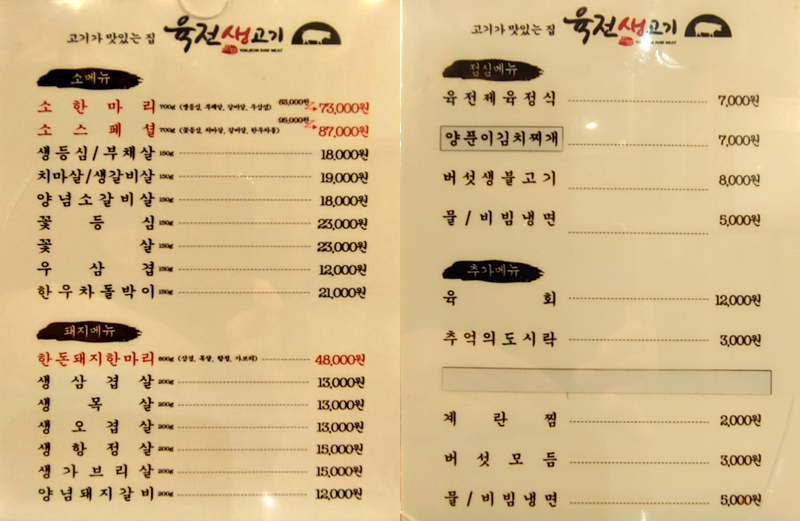 고기가 맛있는 집 육전생고기
YUKJEON RAW MEAT
소메뉴
소한마리 700g (생등심, 부채살, 갈비살, 우삼겹) 83,000원 73,000원
소스페셜 700g (꽃등심, 치마살, 갈비살, 한우차돌) 95,000원 87,000원
생등심/부채살 150g 18,000원
치마살/생갈비살 150g 19,000원
양념소갈비살 150g 18,000원
꽃등심 150g 23,000원
꽃살 150g 23,000원
우삼겹 150g 12,000원
한우차돌박이 150g 21,000원
돼지메뉴
한돈돼지한마리 600g (삼겹, 목살, 항정, 가브리) 48,000원
생삼겹살 200g 13,000원
생목살 200g 13,000원
생오겹살 200g 13,000원
생항정살 200g 15,000원
생가브리살 200g 15,000원
양념돼지갈비 200g 12,000원
고기가 맛있는 집 육전생고기
YUKJEON RAW MEAT
점심메뉴
육전제육정식 7,000원
양푼이김치찌개 7,000원
버섯생불고기 8,000원
물/비빔냉면 5,000원
추가메뉴
육회 12,000원
추억의도시락 3,000원
계란찜 2,000원
버섯모듬 3,000원
물/비빔냉면 5,000원